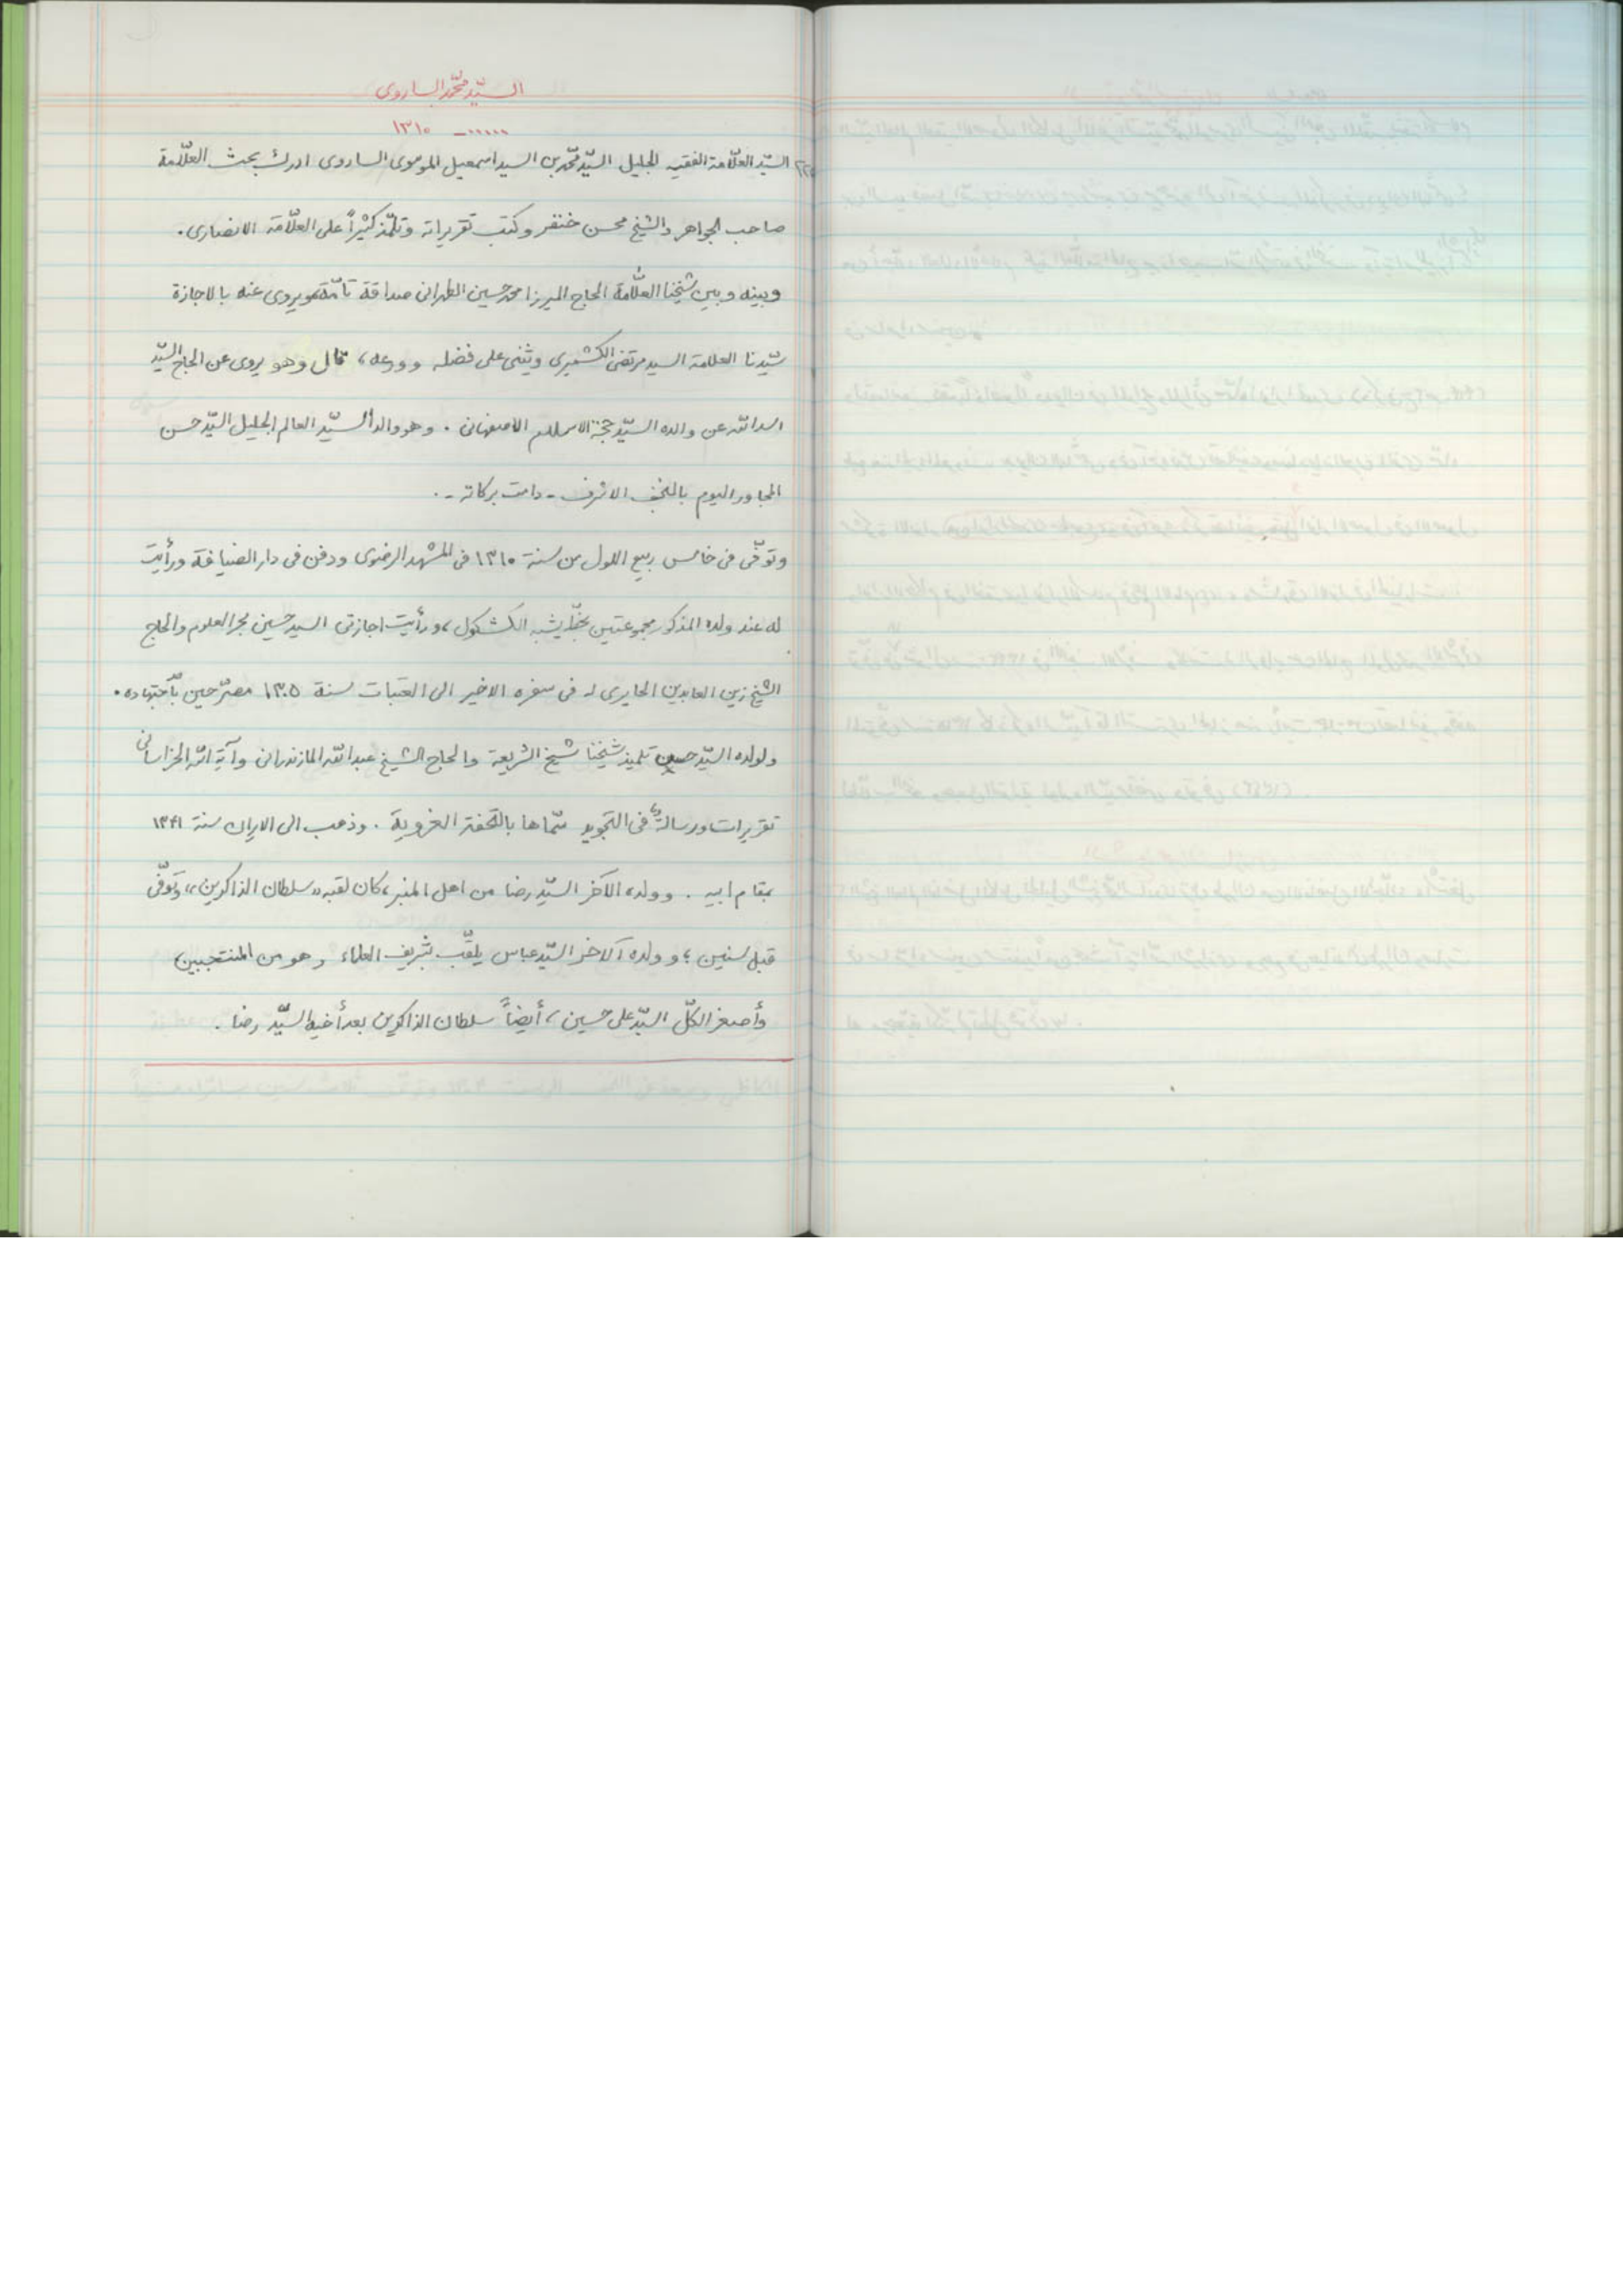 السيّد محمّد الساروى
...... ــ ١٣١٠
السيّد العلّامة الفقيه الجليل السيّد محمّد بن السيد اسمعيل الموسوى الساروى ادرك بحث العلّامة
صاحب الجواهر والشيخ محسن خنفر وكتب تقريراته وتلمّذ كثيراً على العلّامة الانصارى.
وبينه وبين شيخنا العلّامة الحاج الميرزا محمد حسين الطهرانى صداقة تامّة ويروى عنه بالاجازة
سيّدنا العلامة السيد مرتضى الكشميرى ويثنى على فضله وورعه، قال وهو يروى عن الحاج السيّد
اسد اللّه عن والده السيّد حجة الاسلام الاصفهانى. وهو والد السيّد العالم الجليل السيّد حسن
المجاور اليوم بالنجف الاشرف ـ دامت بركاته ـ.
وتوفّى فى خامس ربيع الاول من سنة ١٣١٠ فى المشهد الرضوى ودفن فى دار الضيافة ورأيت
له عند ولده المذكور مجموعتين بخطّه يشبه الكشكول، ورأيت اجازتى السيد حسين بحر العلوم والحاج
الشيخ زين العابدين الحايرى له فى سفره الاخير الى العتبات سنة ١٣٠٥ مصرّحين باجتهاده.
ولولده السيّد تلميذ شيخنا شيخ الشريعة والحاج الشيخ عبد اللّه المازندرانى وآية اللّه الخراسانى
تقريرات ورسالة فى التجويد سمّاها بالتحفة الغروية. وذهب الى الايران سنة ١٣٤١
بمقام ابيه. وولده الآخر السيّد رضا من اهل المنبر، كان لقبه «سلطان الذاكرين»، وتوفّى
قبل سنين؛ وولده الآخر السيّد عباس يلقّب بشريف العلماء وهو من المنتجبين،
وأصغر الكلّ السيّد على حسين، أيضاً سلطان الذاكرين بعد أخيه السيّد رضا.